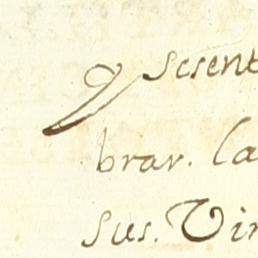 y scsent
brar. la
sus. Vir